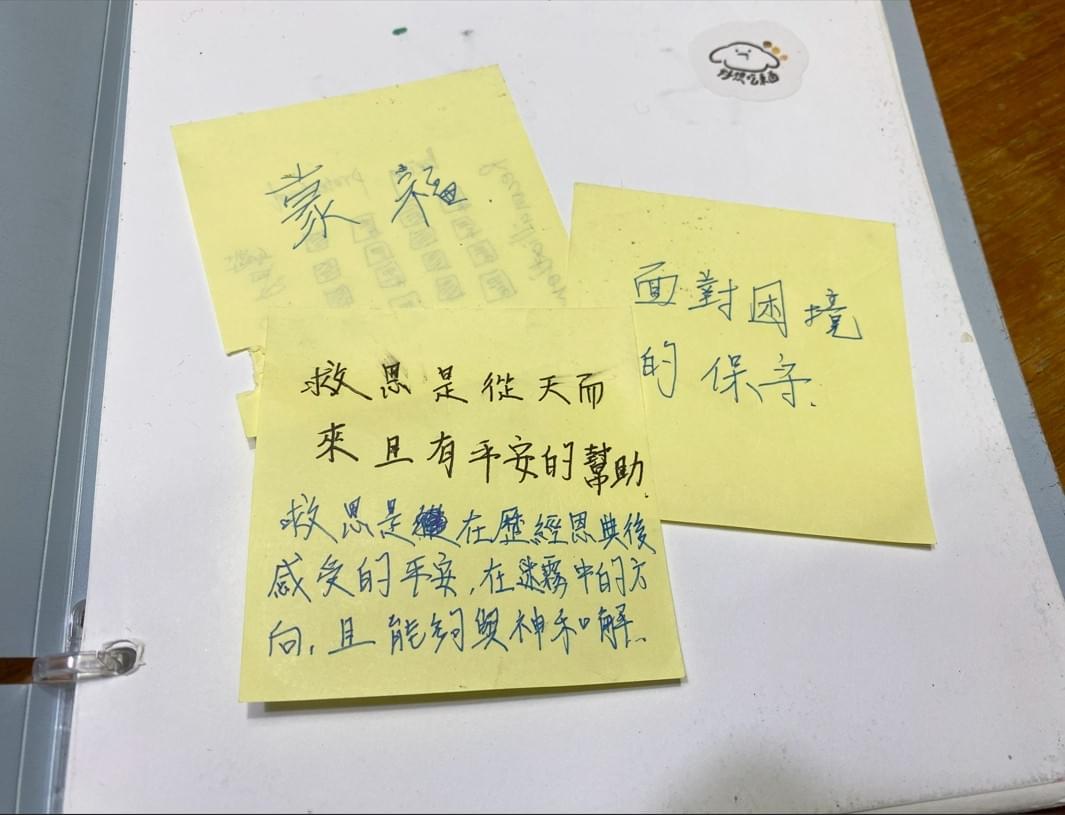 蒙福
面對困境
的保守.
救恩是從天而
來且有平安的幫助.
救恩是在歷經恩典後
感受的平安,在迷霧中的方
向,且能夠與神和解.